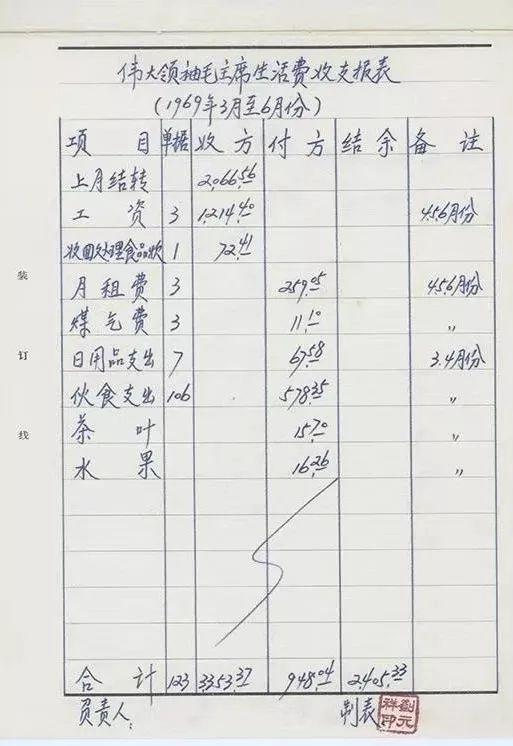 伟大领袖毛主席生活费收支报表
(1969年3月至6月份)
项目 单据 收方 付方 结余 备注
上月结转 2,066.56
工资 3 1,214.40 4.5.6月份
收回处理食品款 1 72.41
月租费 3 259.05 4.5.6月份
煤气费 3 11.10 〃
日用品支出 7 67.58 3.4月份
伙食支出 106 578.35 〃
茶叶 15.70 〃
水果 16.26 〃
合计 123 3353.37 948.04 2,405.33
负责人: 制表 劉元祥印
装
订
线